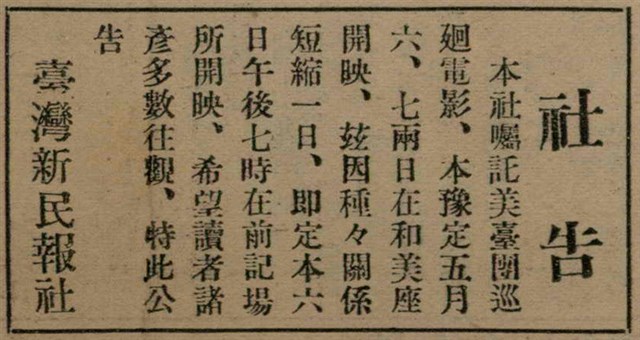 社告
本社囑託美臺團巡
廻電影、本豫定五月
六、七兩日在和美座
開映、玆因種々關係
短縮一日、即定本六
日午後七時在前記場
所開映、希望讀者諸
彥多數往觀、特此公
告
臺灣新民報社